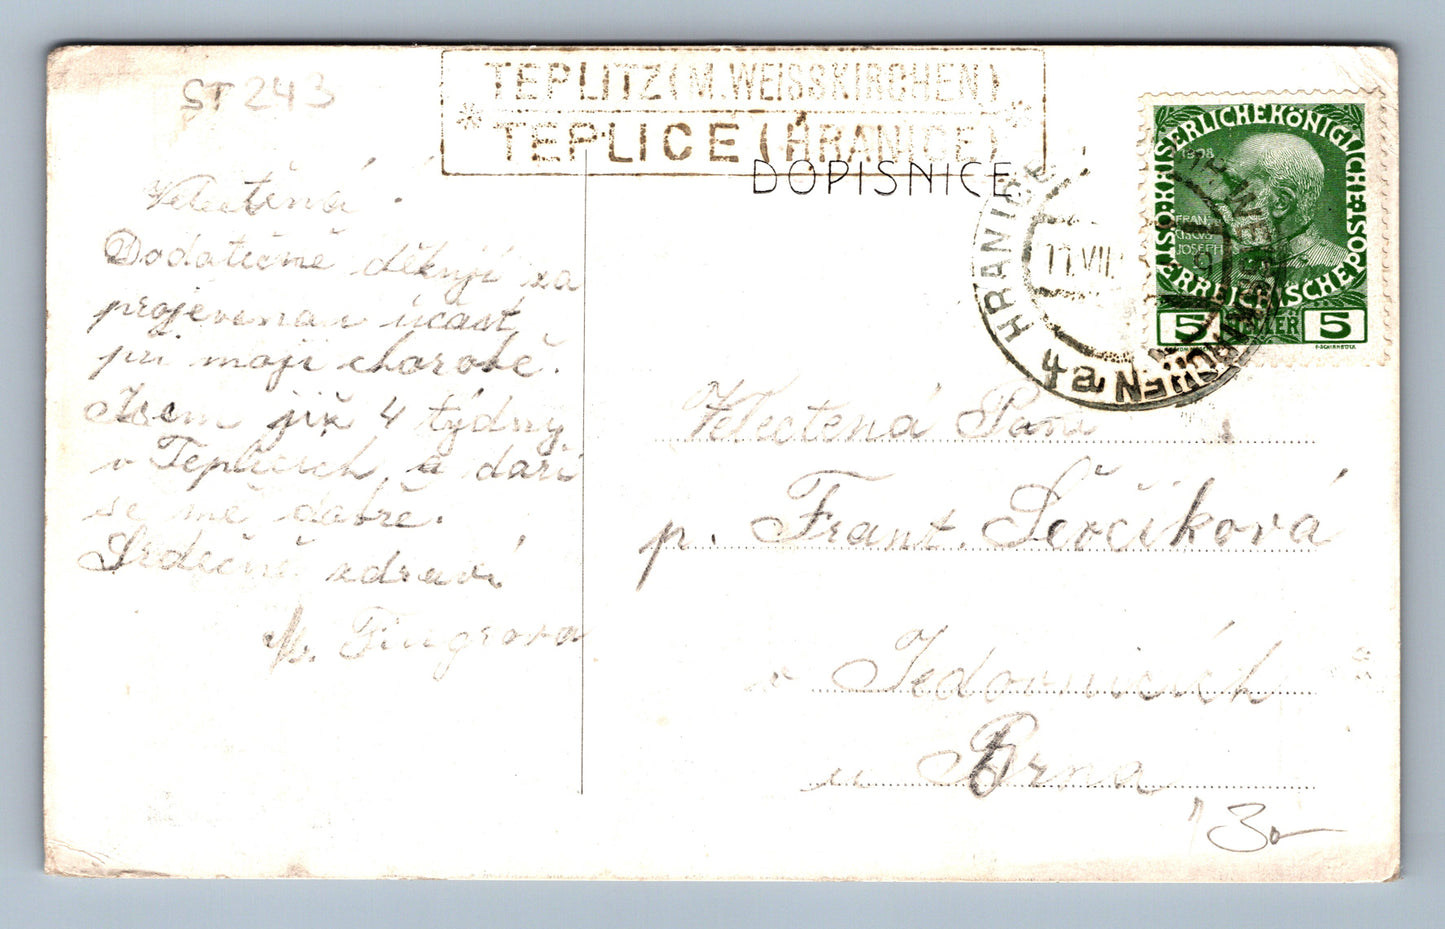 ST 243
TEPLITZ (M. WEISSKIRCHEN)
* TEPLICE (HRANICE) *
DOPISNICE
Velectěná
Dodatečně děkuji za
projevenou účast
při mojí chorobě.
Jsem již 4 týdny
v Teplicích a daří
se mě dobře.
Srdečně zdraví
KAISERLICHE KÖNIGLICHE POST
ÖSTERREICHISCHE
1908
FRANZ
ISCVS
JOSEPH
5 HELLER 5
HRANICE
M. WEISSKIRCHEN
4a
11.VII.
Velectená Paní
p. Frant. Ševčíková
v Jedovnicích
u Brna
30